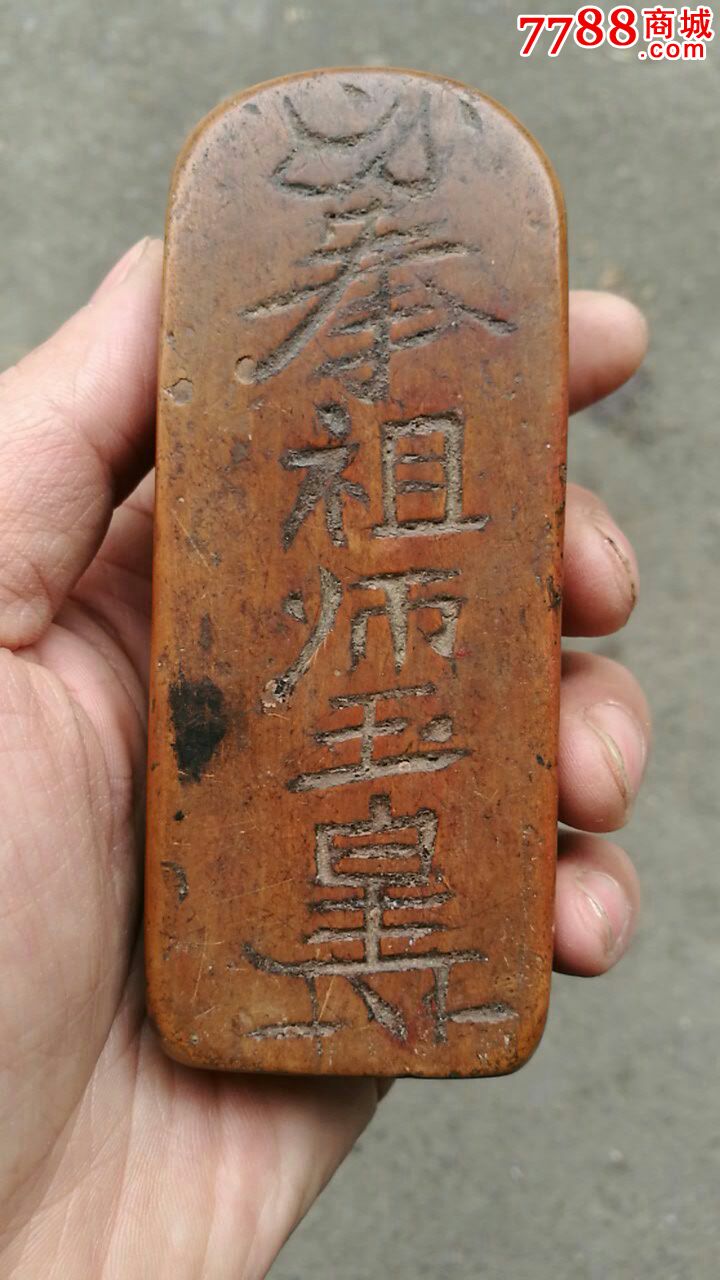 7788商城
.com
奉祖师玉皇